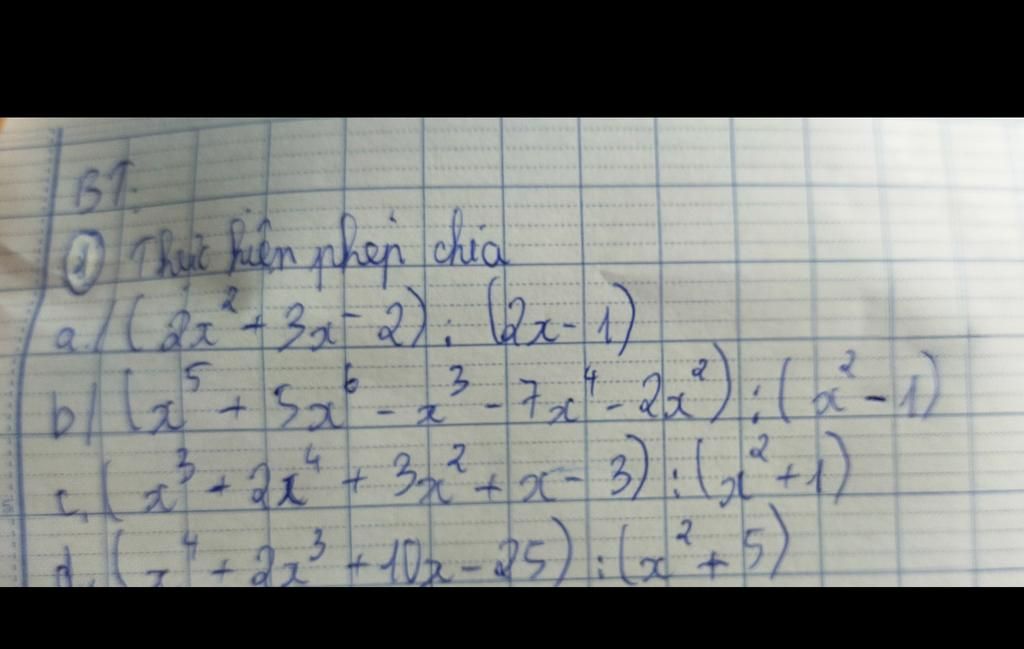 BT.
① Thực hiện phép chia
a/ (2x² + 3x - 2) : (2x - 1)
b/ (x⁵ + 5x⁶ - x³ - 7x⁴ - 2x²) : (x² - 1)
c, (x³ + 2x⁴ + 3x² + x - 3) : (x² + 1)
d, (x⁴ + 2x³ + 10x - 25) : (x² + 5)